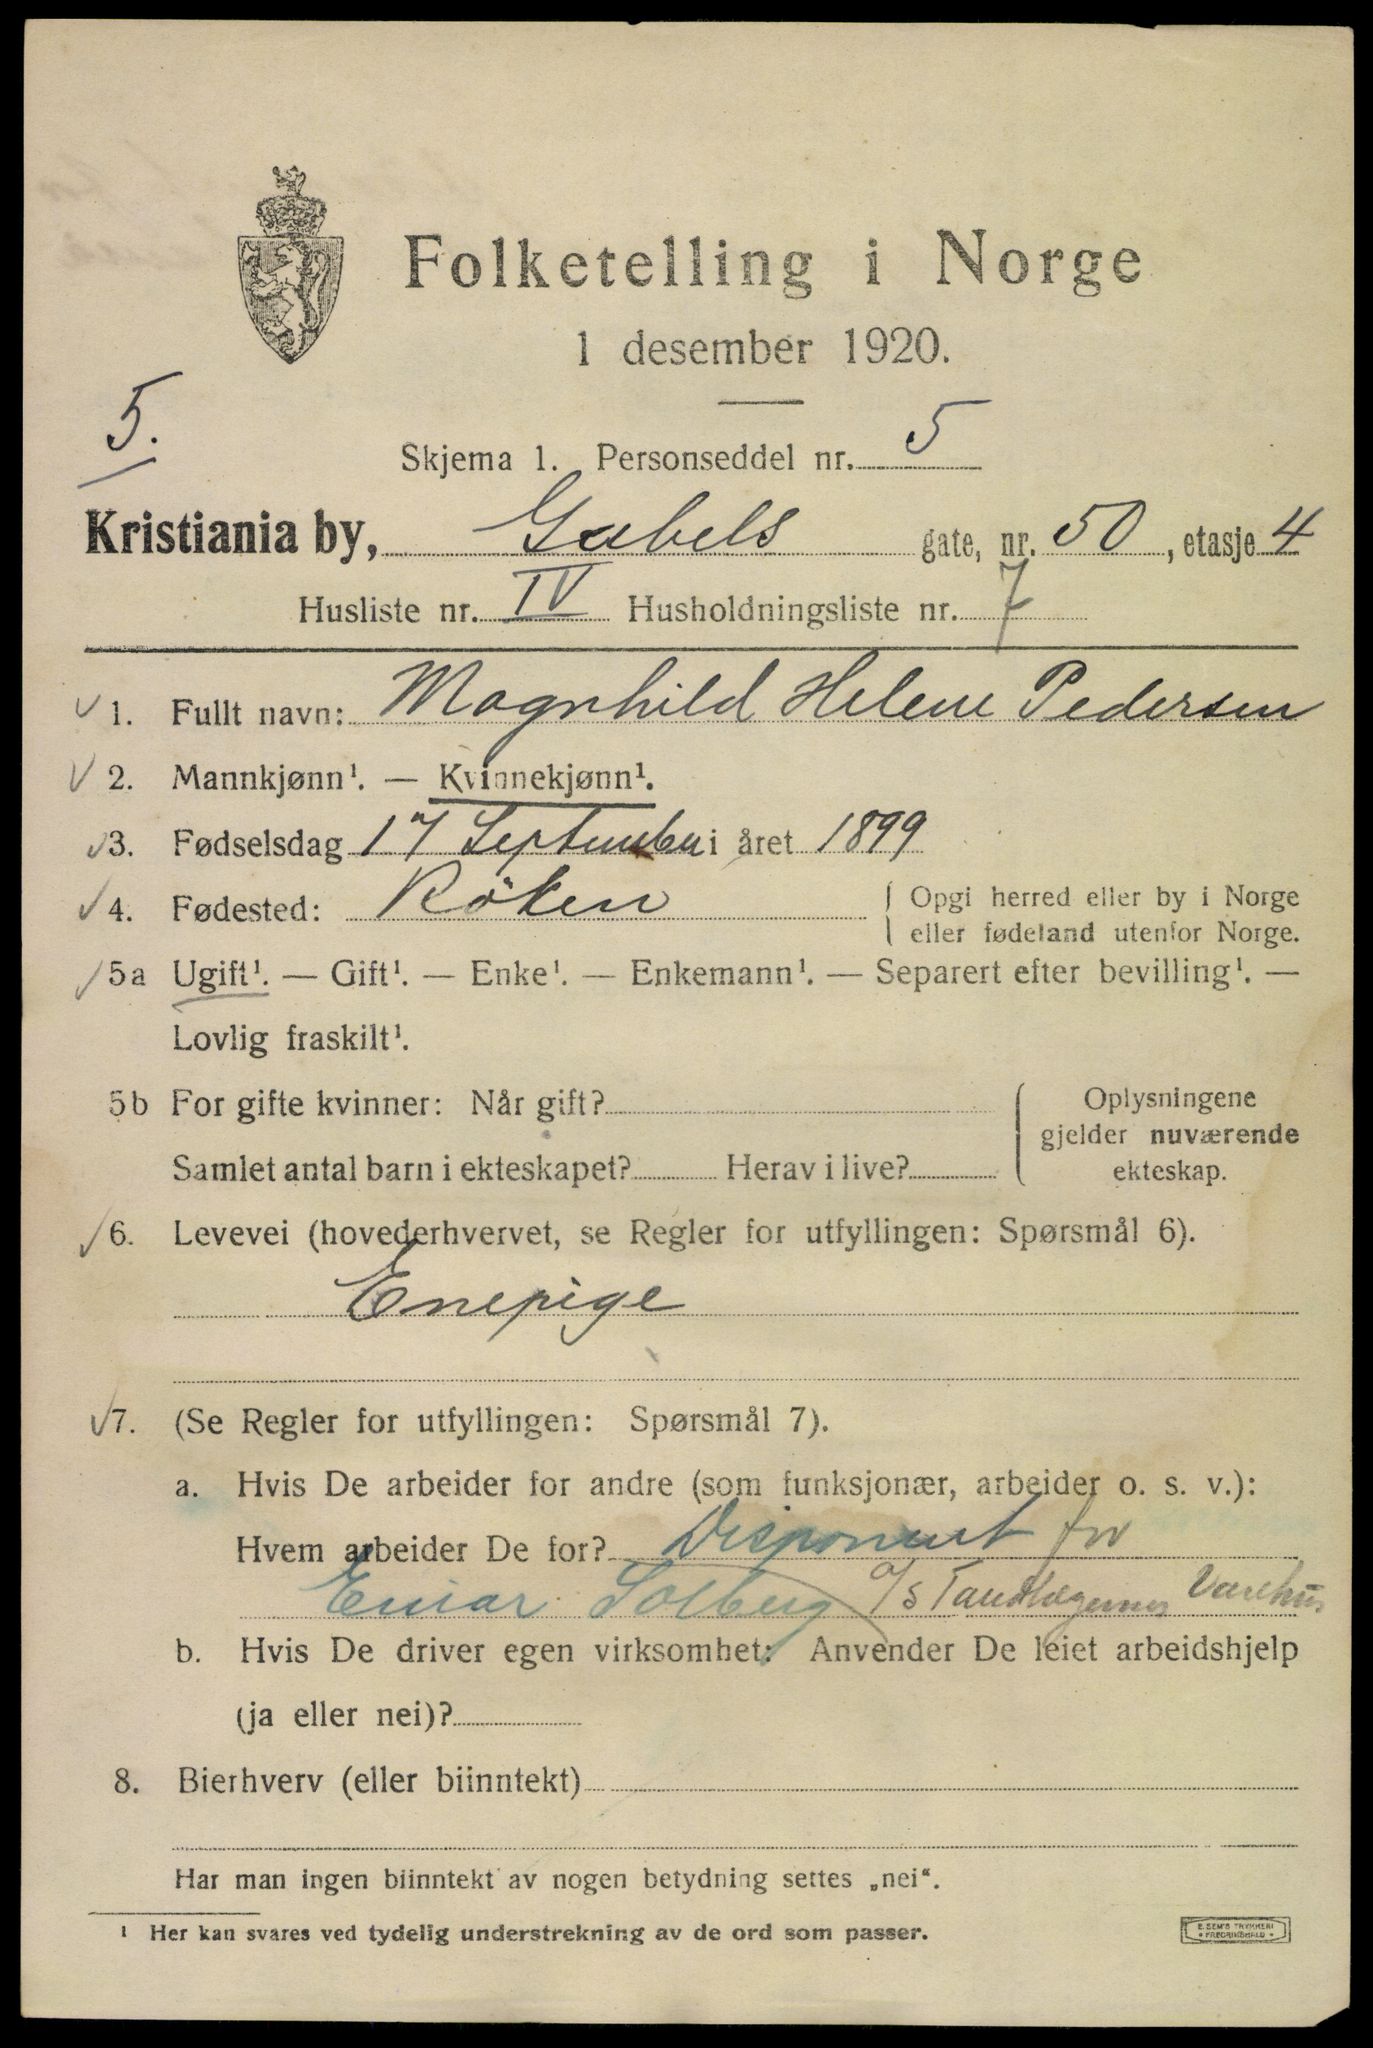 Folketelling i Norge
1 desember 1920.
5.
Skjema 1. Personseddel nr. 5
Kristiania by, Gabels gate, nr. 50, etasje 4
Husliste nr. IV Husholdningsliste nr. 7
1. Fullt navn: Magnhild Helene Pedersen
2. Mannkjønn¹. — Kvinnekjønn¹.
3. Fødselsdag 17 September i året 1899
4. Fødested: Röken { Opgi herred eller by i Norge
eller fødeland utenfor Norge.
5a Ugift¹. — Gift¹. — Enke¹. — Enkemann¹. — Separert efter bevilling¹. —
Lovlig fraskilt¹.
5b For gifte kvinner: Når gift?
Samlet antal barn i ekteskapet? Herav i live?
Oplysningene
gjelder nuværende
ekteskap.
6. Levevei (hovederhvervet, se Regler for utfyllingen: Spørsmål 6).
Enepige
7. (Se Regler for utfyllingen: Spørsmål 7).
a. Hvis De arbeider for andre (som funksjonær, arbeider o. s. v.):
Hvem arbeider De for? Disponent for
Einar Solberg A/S Tandlægernes Varehus
b. Hvis De driver egen virksomhet: Anvender De leiet arbeidshjelp
(ja eller nei)?
8. Bierhverv (eller biinntekt)
Har man ingen biinntekt av nogen betydning settes „nei“.
¹ Her kan svares ved tydelig understrekning av de ord som passer.
E. SEM'S TRYKKERI
FREDRIKSHALD